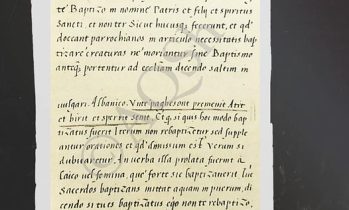 te Baptizo in nomine Patris et filij et spiritus
Sancti, et non ter sicut hucusq; fecerunt, et qd
doceant parrochianos in articulo necessitatis bap
tizare creaturas ne moriantur sine Baptismo
anteq; portentur ad ecclam dicendo saltem in
vulgari Albanico. Vnte paghesont premenit Atit
et birit et spertit senit. Et q; si quis hoc modo bap
tizatus fuerit iterum non rebaptizetur sed supple
antur orationes et qd omissum est. Verum si
dubitatur in verba illa prolata fuerint à
laico vel femina, que forte sic baptauerit
Sacerdos baptizans mittat aquam in puerum, di
cendo si tu es baptizatus ego non te rebaptizo,